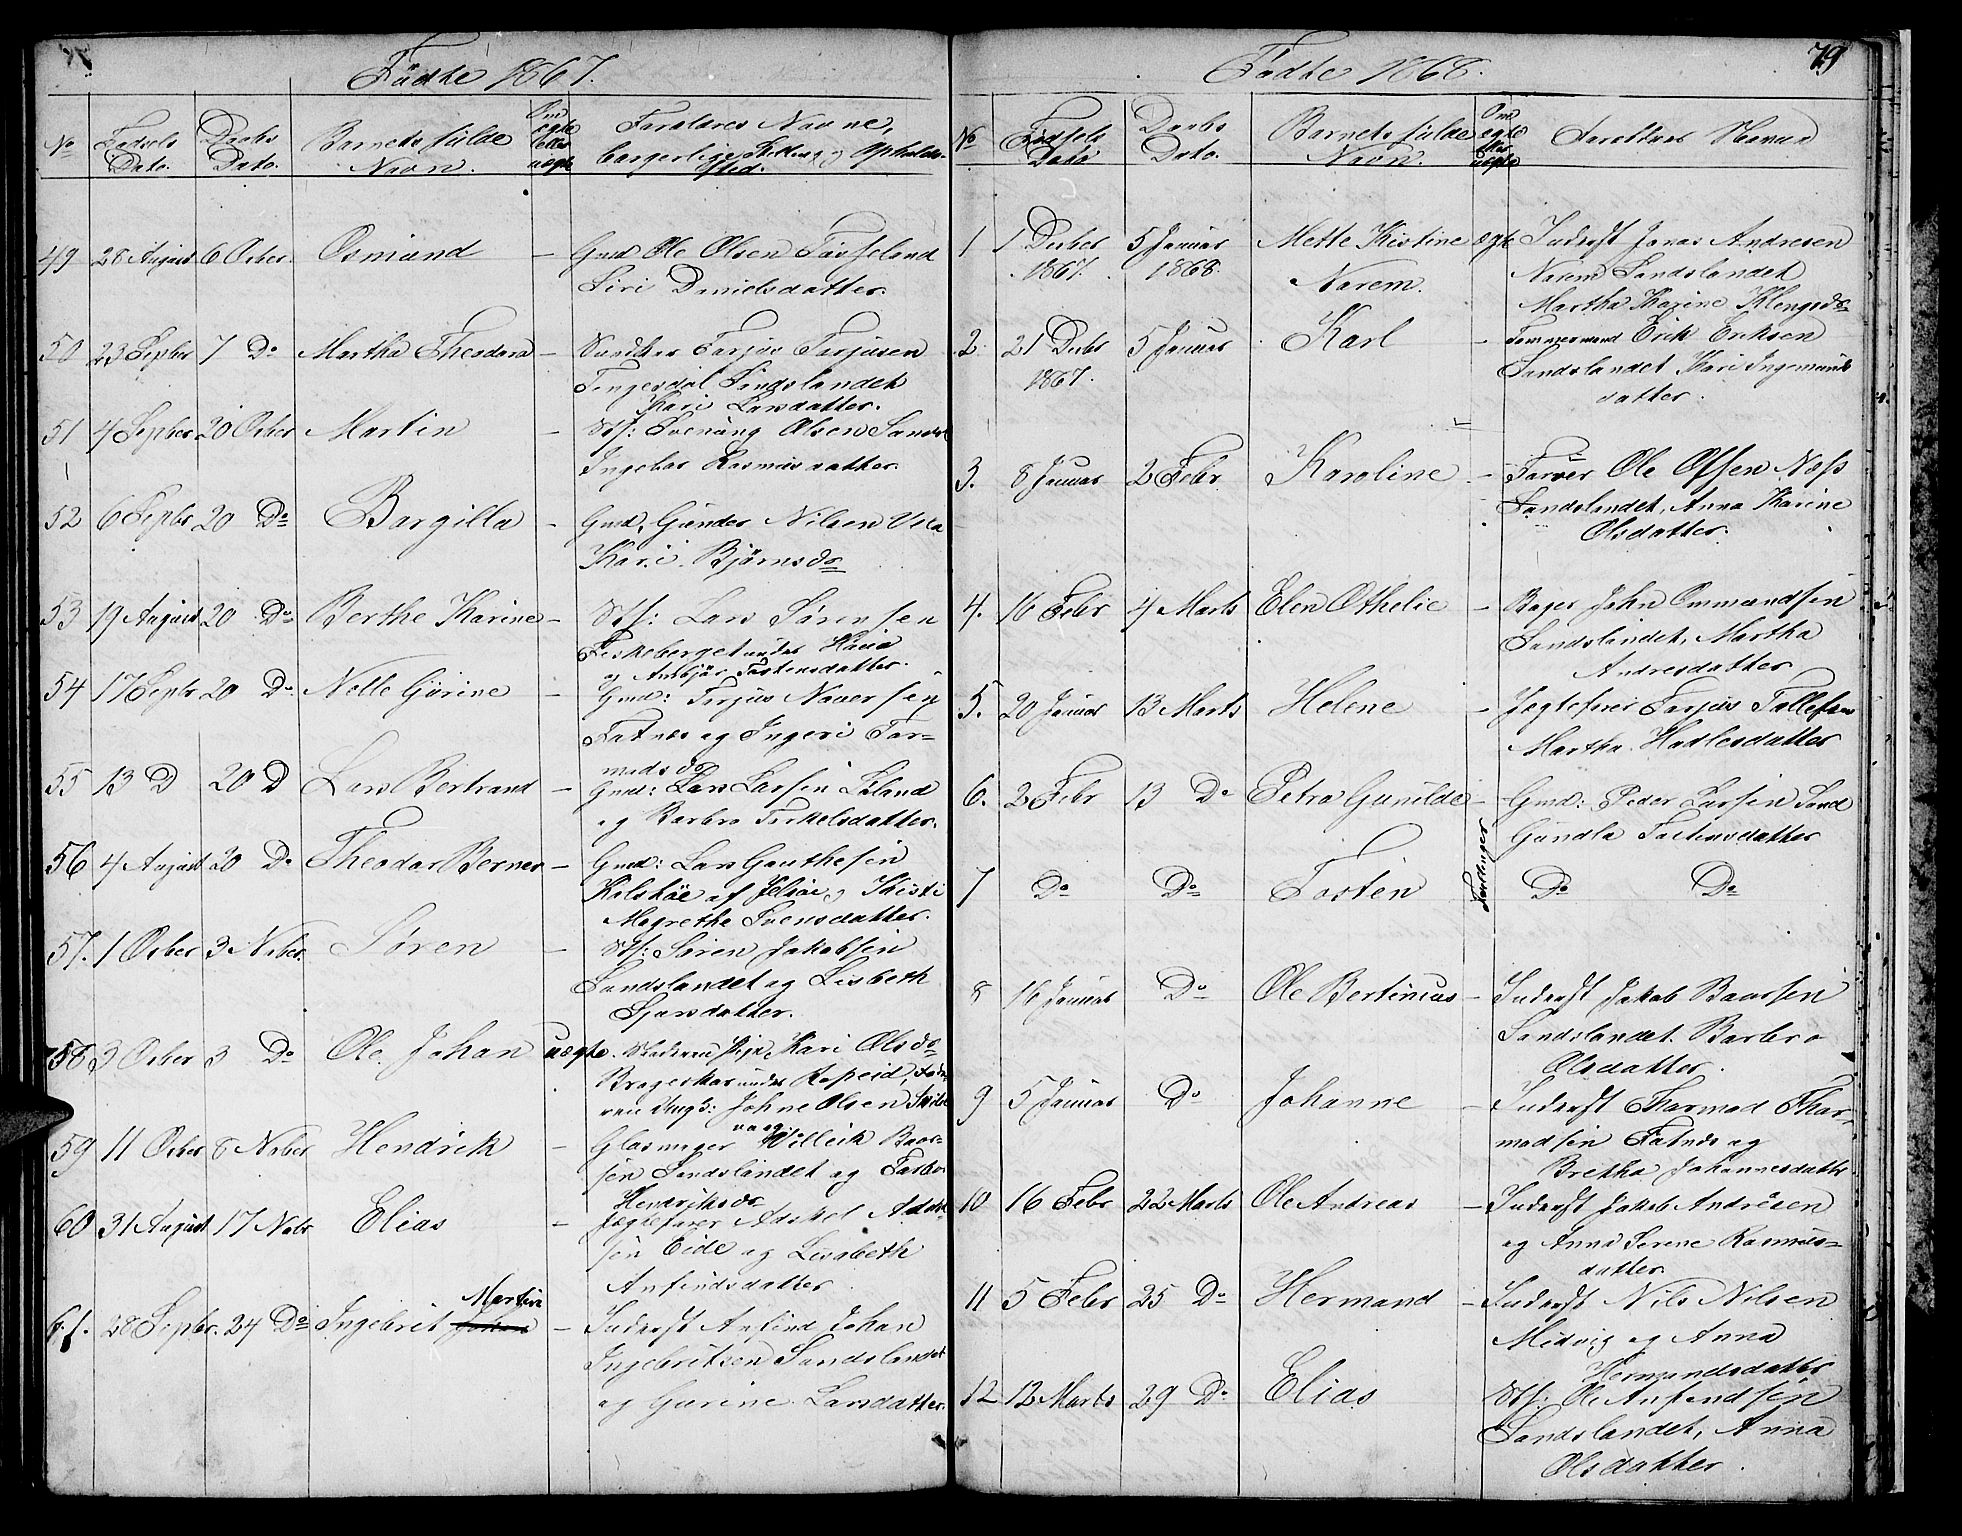 Fødte 1867.
No Fødsels Dato. Daabs Dato. Barnets fulde Navn. Om ægte eller uægte Forældres Navne, borgerlige Stilling og Opholdssted.
49 28 August 6 Octber Osmund — Gmd Ole Olsen Tasseland
Siri Danielsdatter.
50 23 Septbr 7 Do Martha Theodora — Tarjus Tarjusen
Tengesdal Sandslandet
Kari Larsdatter.
51 4 Septber 20 Octber Martin — Stf: Svenung Olsen Sand
Ingebor Rasmusdatter.
52 6 Septbr 20 Do Bargilla — Gmd. Gunder Nilsen
Kari Bjørnsdr
53 19 August 20 Do Berthe Karine — Stf: Lars Sørensen
Fiskeberget under
og Anbjør Tostensdatter.
54 17 Septbr 20 Do Nelle Gurine — Gmd: Terjus
Fatnes og Ingeri Tor-
madsdr
55 13 D 20 D Lars Bertrand — Gmd: Lars Larsen Leland
og Barbro Torkelsdatter.
56 4 August 20 Do Theodor Berner — Gmd: Lars Gauthesen
Kolshøe af Jelsøe og Kristi
Magrethe Svensdatter.
57. 1 Octber 3 Nvber. Søren — Stf: Søren Jakobsen
Sandslandet og Lisbeth
Sjursdatter.
58 3 Octber 3 Do Ole Johan uægte. Pige Kari Olsdr
under Ropeid,
Ungk: Johne Olsen
59 11 Octber 8 Nvber Hendrik — Glasmager Villeik Baar-
sen Sandslandet og
Henriksdr
60 31 August 17 Nvbr Elias — Jægtefører Adskel
sen Eide og Lisabeth
Anfindsdatter
61. 28 Septbr. 24 Do Ingebrit Martin Johan — Inderst Anfind Johan
Ingebritsen Sandslandet
og Gurine Larsdatter.
79
Fødte 1868.
No Fødsels Dato Daabs Dato. Barnets fulde Navn. Om ægte eller uægte Forældres Navne
1 1 Decber 5 Januar Mette Kistine ægte Inderst Jonas Andresen
1867. 1868. Narem. Narem Sandslandet
Martha Karine Klengsdr
2. 21 Decbr 5 Januar Karl — Tømmermand Erik Eriksen
1867. Sandslandet Kari Ingemunds
datter.
3. 8 Januar 2 Febr Karoline — Farver Ole Olsen Næss
Sandslandet, Anna Karine
Olsdatter.
4. 16 Febr 4 Marts Elen Othelie — Bager John Ommundsen
Sandslandet, Martha
Andresdatter
5. 20 Januar 13 Marts Helene — Jægtefører Tarjus Tollefsen
Martha Hadlesdatter
6. 2 Febr 13 Do Petra Gunilde — Gmd: Peder Larsen Sand
Gundla Tostensdatter
Tvillinger
7 Do Do Tosten Do Do
8 16 Januar Do Ole Bertinius — Inderst Jakob Baarsen
Sandslandet. Barbro
Olsdatter.
9 5 Januar Do Johanne — Inderst Thormod Thor-
modsen Fatnes og
Bretha Johannesdatter.
10 16 Febr 22 Marts Ole Andreas — Inderst Jakob Andresen
og Anna Serene Rasmus-
datter.
11 5 Febr 25 Do Hermand — Inderst Nils Nilsen
Midvig og Anna
Hermundsdatter
12 12 Marts 29 Do Elias Stf: Ole Anfendsen
Sandslandet, Anna
Olsdatter.